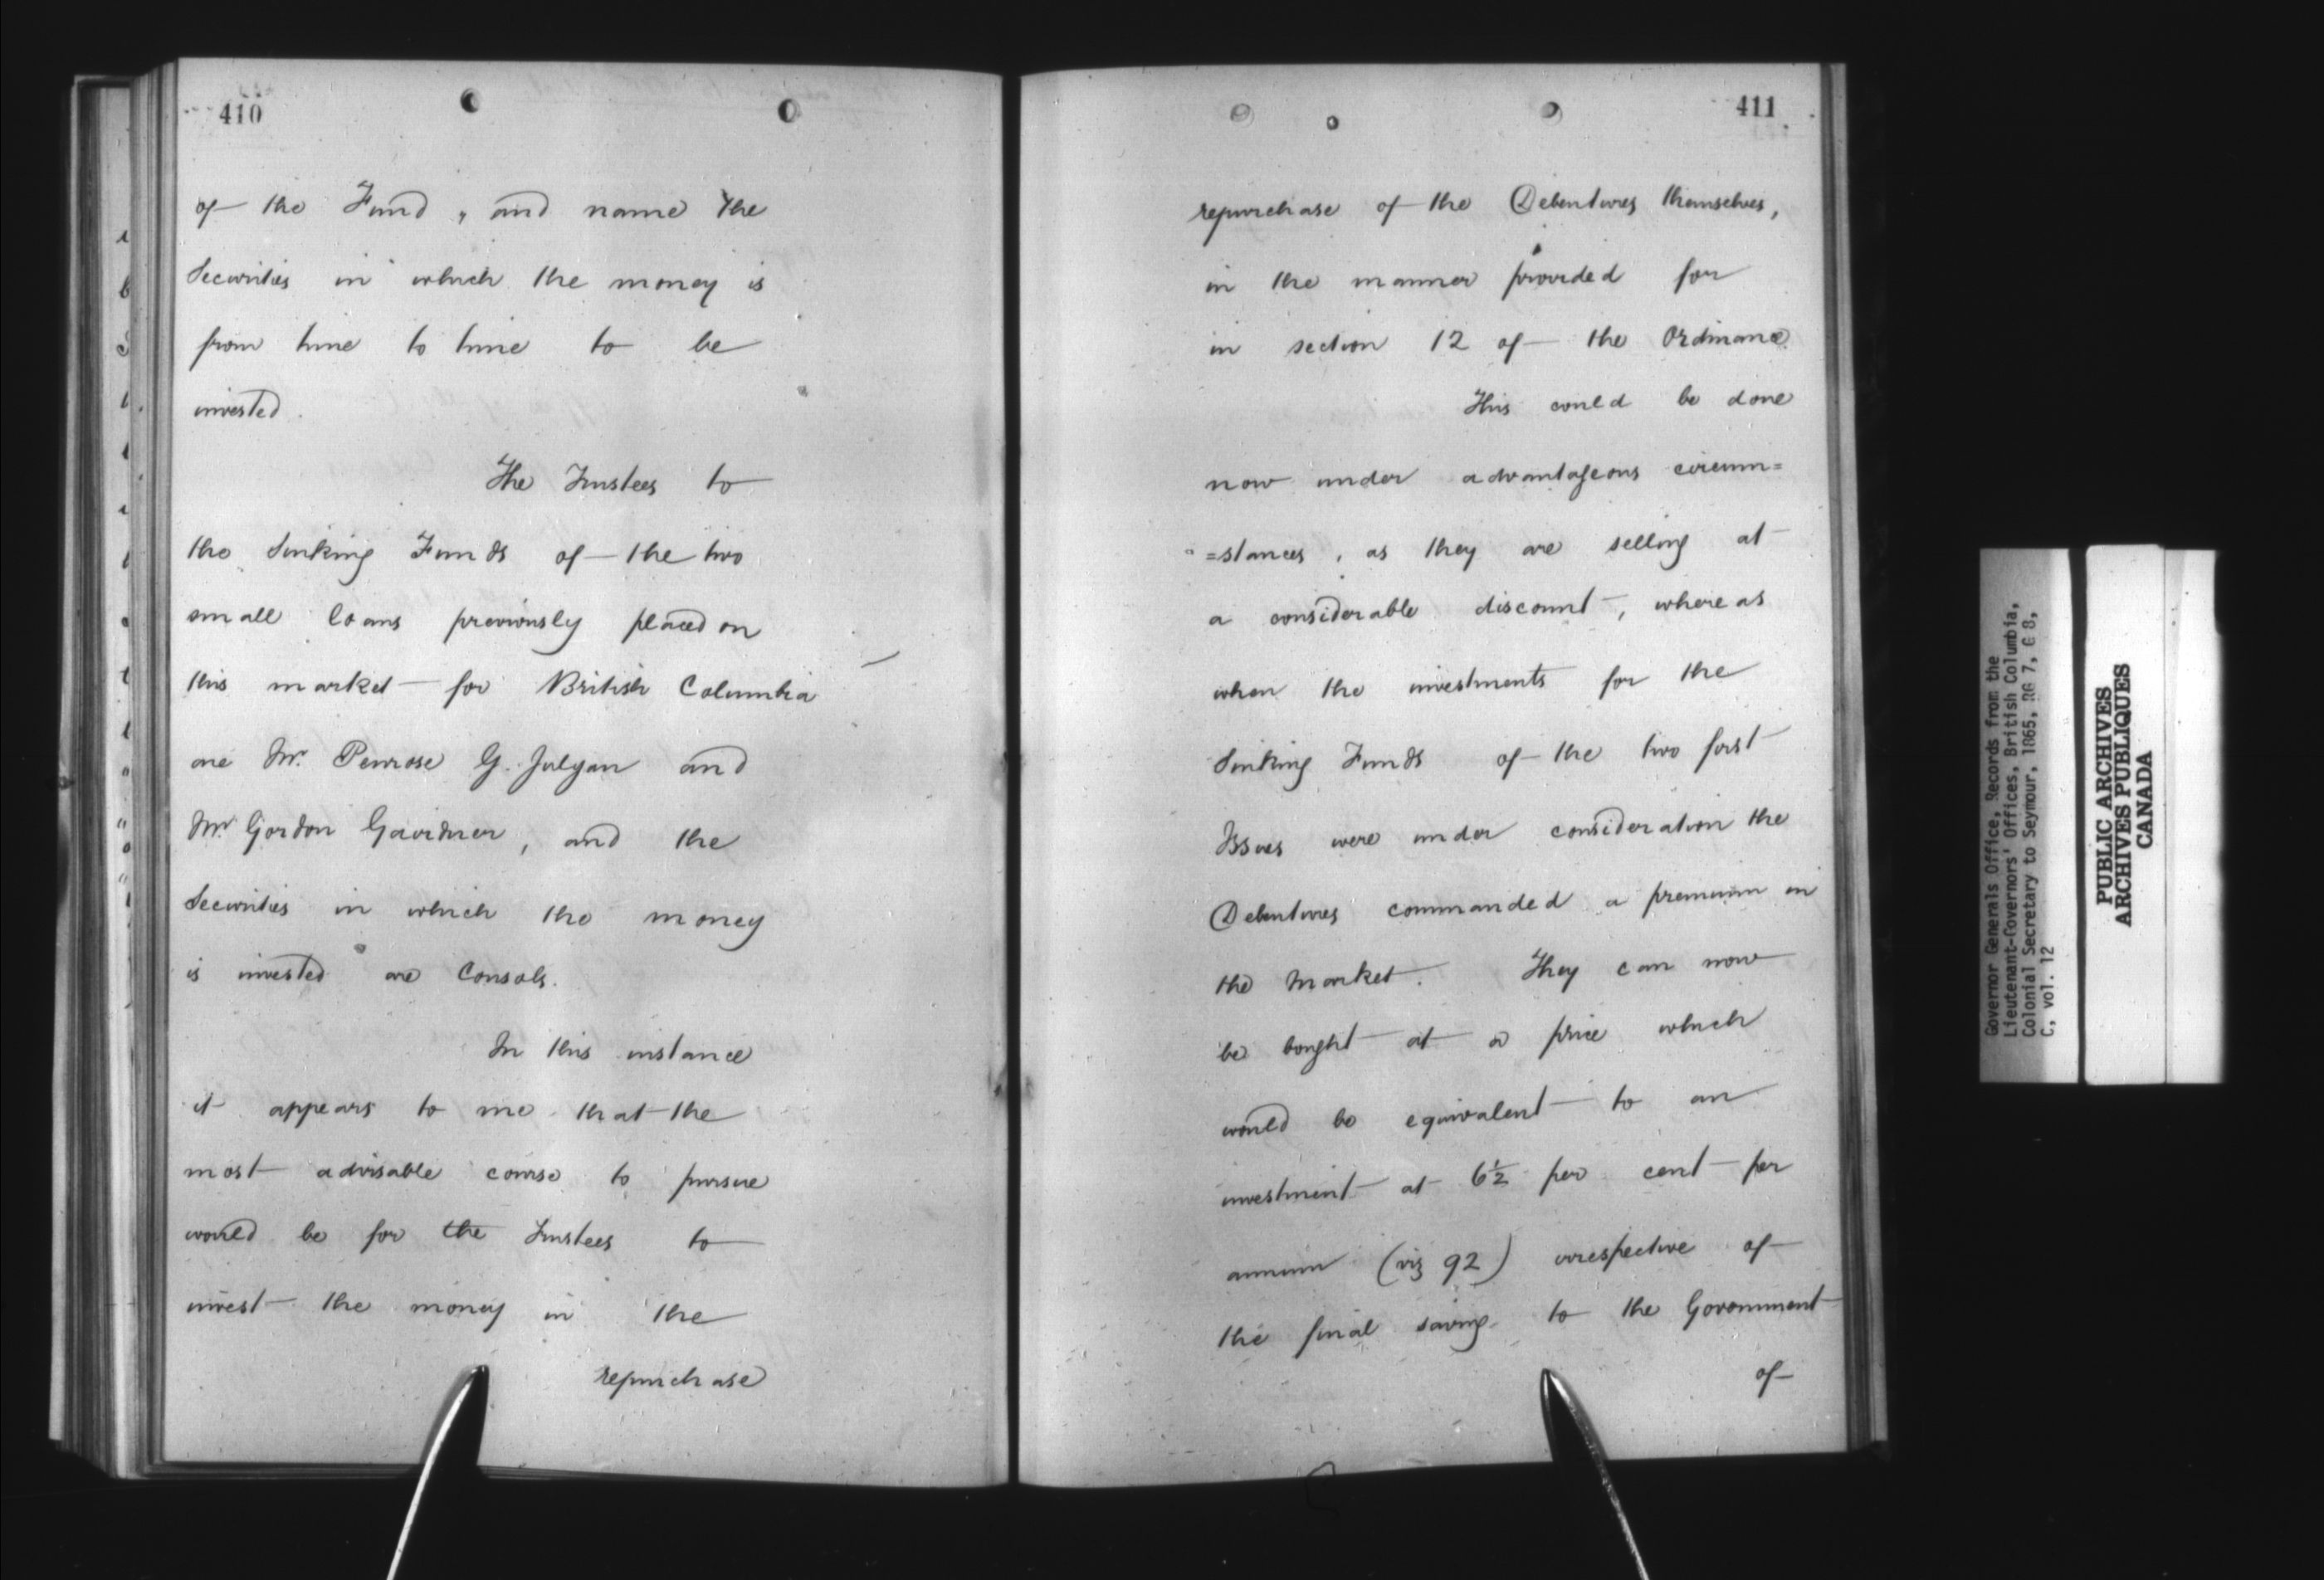 410
of the Fund, and name the
Securities in which the money is
from time to time to be
invested.
The Trustees to
the Sinking Funds of the two
small loans previously placed on
this market for British Columbia
are Mr. Penrose G. Julyan and
Mr Gordon Gairdner, and the
Securities in which the money
is invested are Consols.
In this instance
it appears to me that the
most advisable course to pursue
would be for the Trustees to
invest the money in the
repurchase
411
repurchase of the Debentures themselves,
in the manner provided for
in section 12 of the Ordinance
This could be done
now under advantageous circum=
=stances, as they are selling at
a considerable discount, whereas
when the investments for the
Sinking Funds of the two first
Issues were under consideration the
Debentures commanded a premium in
the Market. They can now
be bought at a price which
would be equivalent to an
investment at 6½ per cent per
annum (viz 92) irrespective of
the final saving to the Government
of
Governor Generals Office, Records from the
Lieutenant-Governors' Offices, British Columbia,
Colonial Secretary to Seymour, 1865, RG 7, G 8,
C, vol. 12
PUBLIC ARCHIVES
ARCHIVES PUBLIQUES
CANADA